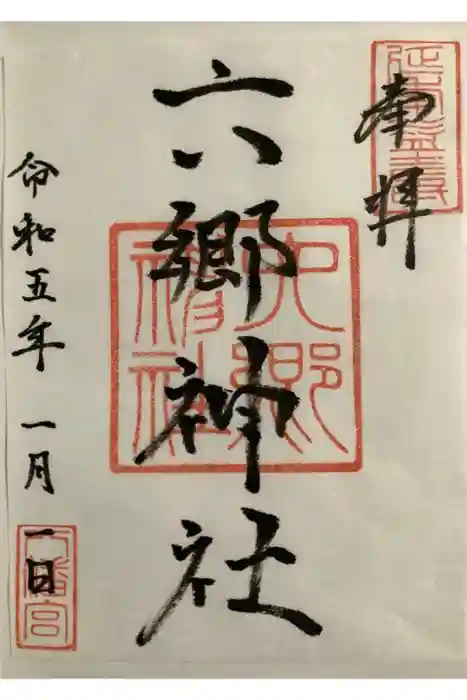 奉拝
六郷神社
六郷神社
令和五年 一月 一日
八幡宮